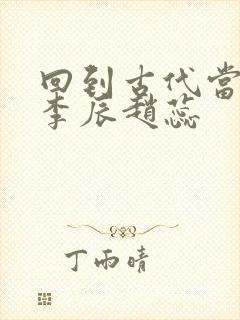 回到古代當
李辰趙蕊
丁雨晴